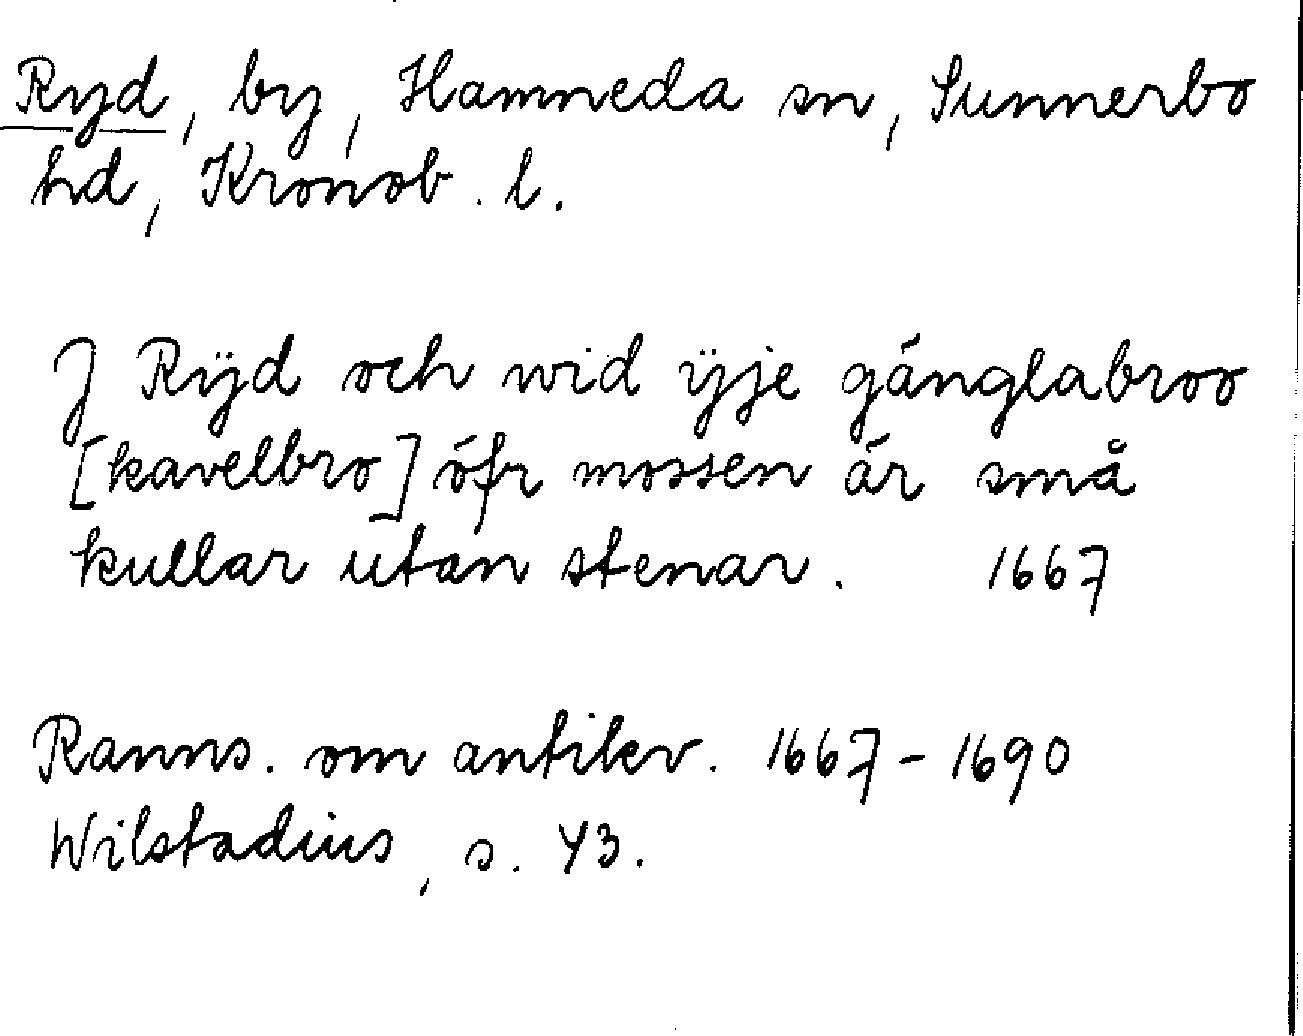 Ryd, by, Hamneda sn, Sunnerbo
hd, Kronob. l.
J Rÿd och wid ÿje gánglabroo
[kavelbro] ófr mossen ár små
kullar utan stenar. 1667
Ranns. om antikv. 1667-1690
Wilstadius, s. 43.